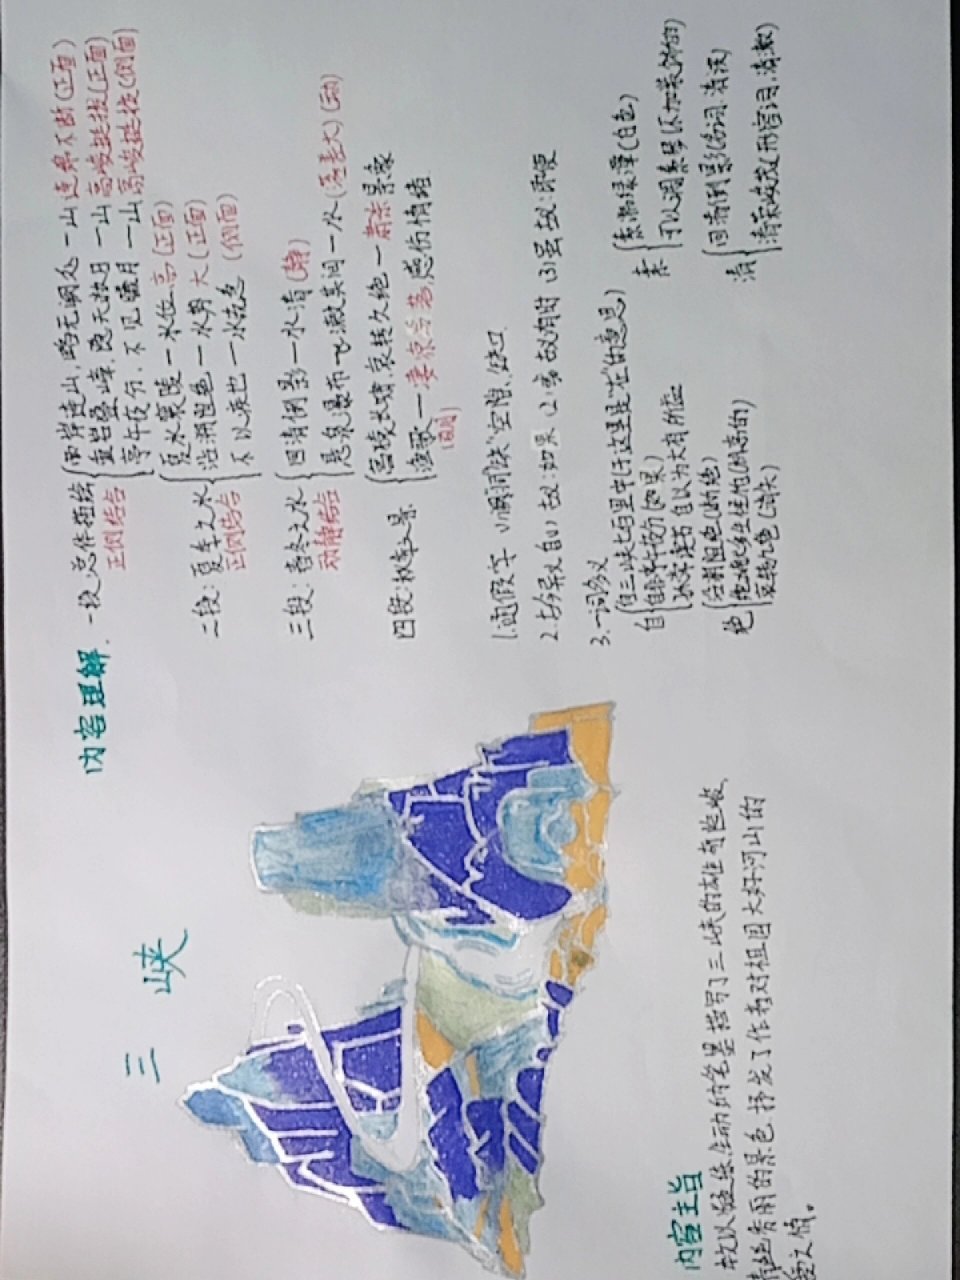 三 峡
内容理解
一段:总体描绘
正侧结合
两岸连山,略无阙处—山连绵不断(正面)
重岩叠嶂,隐天蔽日—山高峻挺拔(正面)
亭午夜分,不见曦月—山高峻挺拔(侧面)
二段:夏季之水
正侧结合
夏水襄陵—水位高(正面)
沿溯阻绝—水势大(正面)
不以疾也—水流急(侧面)
三段:春冬之水
动静结合
回清倒影—水清(静)
悬泉瀑布飞漱其间—水(落差大)(动)
四段:秋季之景
高猿长啸哀转久绝—萧杀景象
渔歌—凄凉,感伤情绪
1.通假字 "阙"同"缺"空隙、缺口
2.古今异义 自(1)故:如果 (2)或:有时 (3)虽:即便
3.一词多义
自
自三峡七百里中(于,这里是"在"的意思)
自非亭午夜分(如果)
绝
沿溯阻绝(断绝)
素
素湍绿潭(白色)
清
回清倒影(名词,清波)
清荣峻茂(形容词,清澈)
内容主旨
生动的笔墨描写了三峡的雄奇险峻、
清幽秀丽的景色,抒发了作者对祖国大好河山的
爱之情。